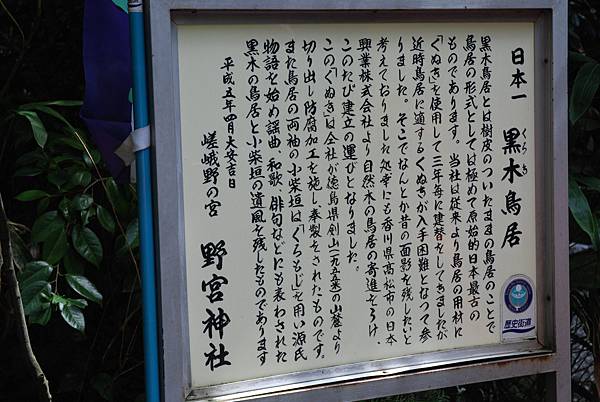 日本一 黒木鳥居
くろき
黒木鳥居とは樹皮のついたままの鳥居のことで
鳥居の形式としては極めて原始的日本最古の
ものであります。当社は従来より鳥居の用材に
「くぬぎ」を使用して三年毎に建替をしてきましたが
近時鳥居に適するくぬぎが入手困難となって参
りました。そこでなんとか昔の面影を残したいと
考えておりました処幸にも香川県高松市の日本
興業株式会社より自然木の鳥居の寄進をうけ
このたび建立の運びとなりました。
この「くぬぎ」は仝社が徳島県剣山(一九五五米)の山麓より
切り出し防腐加工を施し、奉製をされたものです。
また鳥居の両袖の小柴垣は「くろもじ」を用い源氏
物語を始め謡曲、和歌、俳句などにも表わされた
黒木の鳥居と小柴垣の遺風を残したものであります
平成五年四月大安吉日
嵯峨野の宮 野宮神社
歴史街道